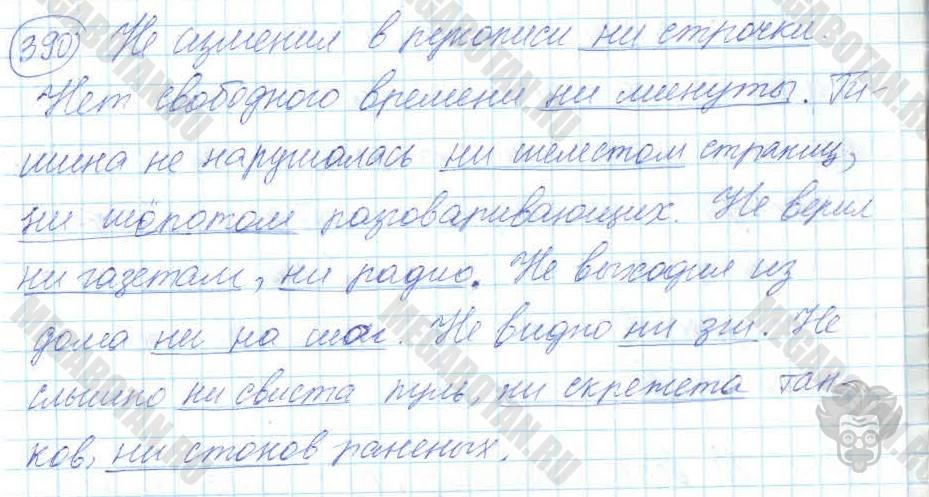 390 Не изменил в рукописи ни строчки.
Нет свободного времени ни минуты. Ти-
шина не нарушалась ни шелестом страниц,
ни шёпотом разговаривающих. Не верил
ни газетам, ни радио. Не выходил из
дома ни на шаг. Не видно ни зги. Не
слышно ни свиста пуль, ни скрежета тан-
ков, ни стонов раненых.
MEGABOTAN.RU